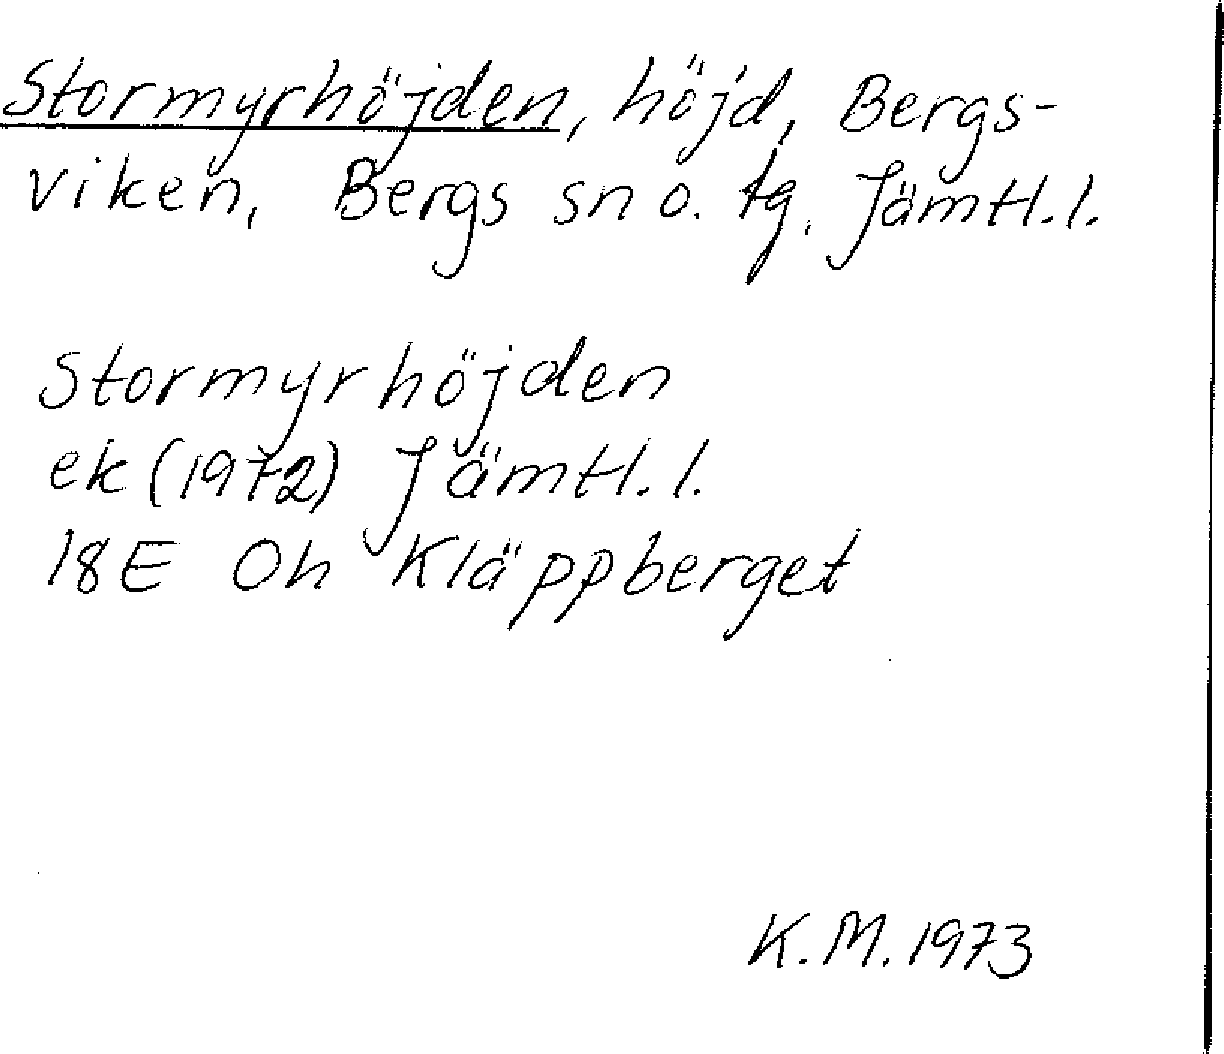 Stormyrhöjden, höjd, Bergs-
viken, Bergs sn o. tg. Jämtl. l.
Stormyrhöjden
ek (1972) Jämtl. l.
18E Oh Kläppberget
K. M. 1973